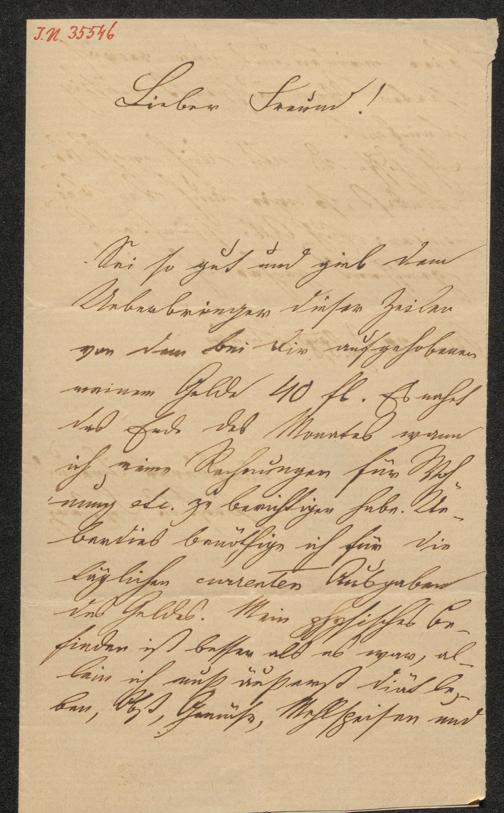 I.N. 35546
Lieber Freund!
Sei so gut und gieb dem
Ueberbringer dieser Zeilen
von dem bei Dir aufgehobenen
meinem Gelde 40 fl. Es naht
das Ende des Monates wann
ich meine Rechnungen für Woh-
nung etc. zu berichtigen habe. Ue-
berdies benöthige ich für die
täglichen currenten Ausgaben
des Geldes. Mein physisches Be-
finden ist besser als es war, al-
lein ich muß äußerst diät le-
ben, Obst, Gemüse, Mehlspeisen und